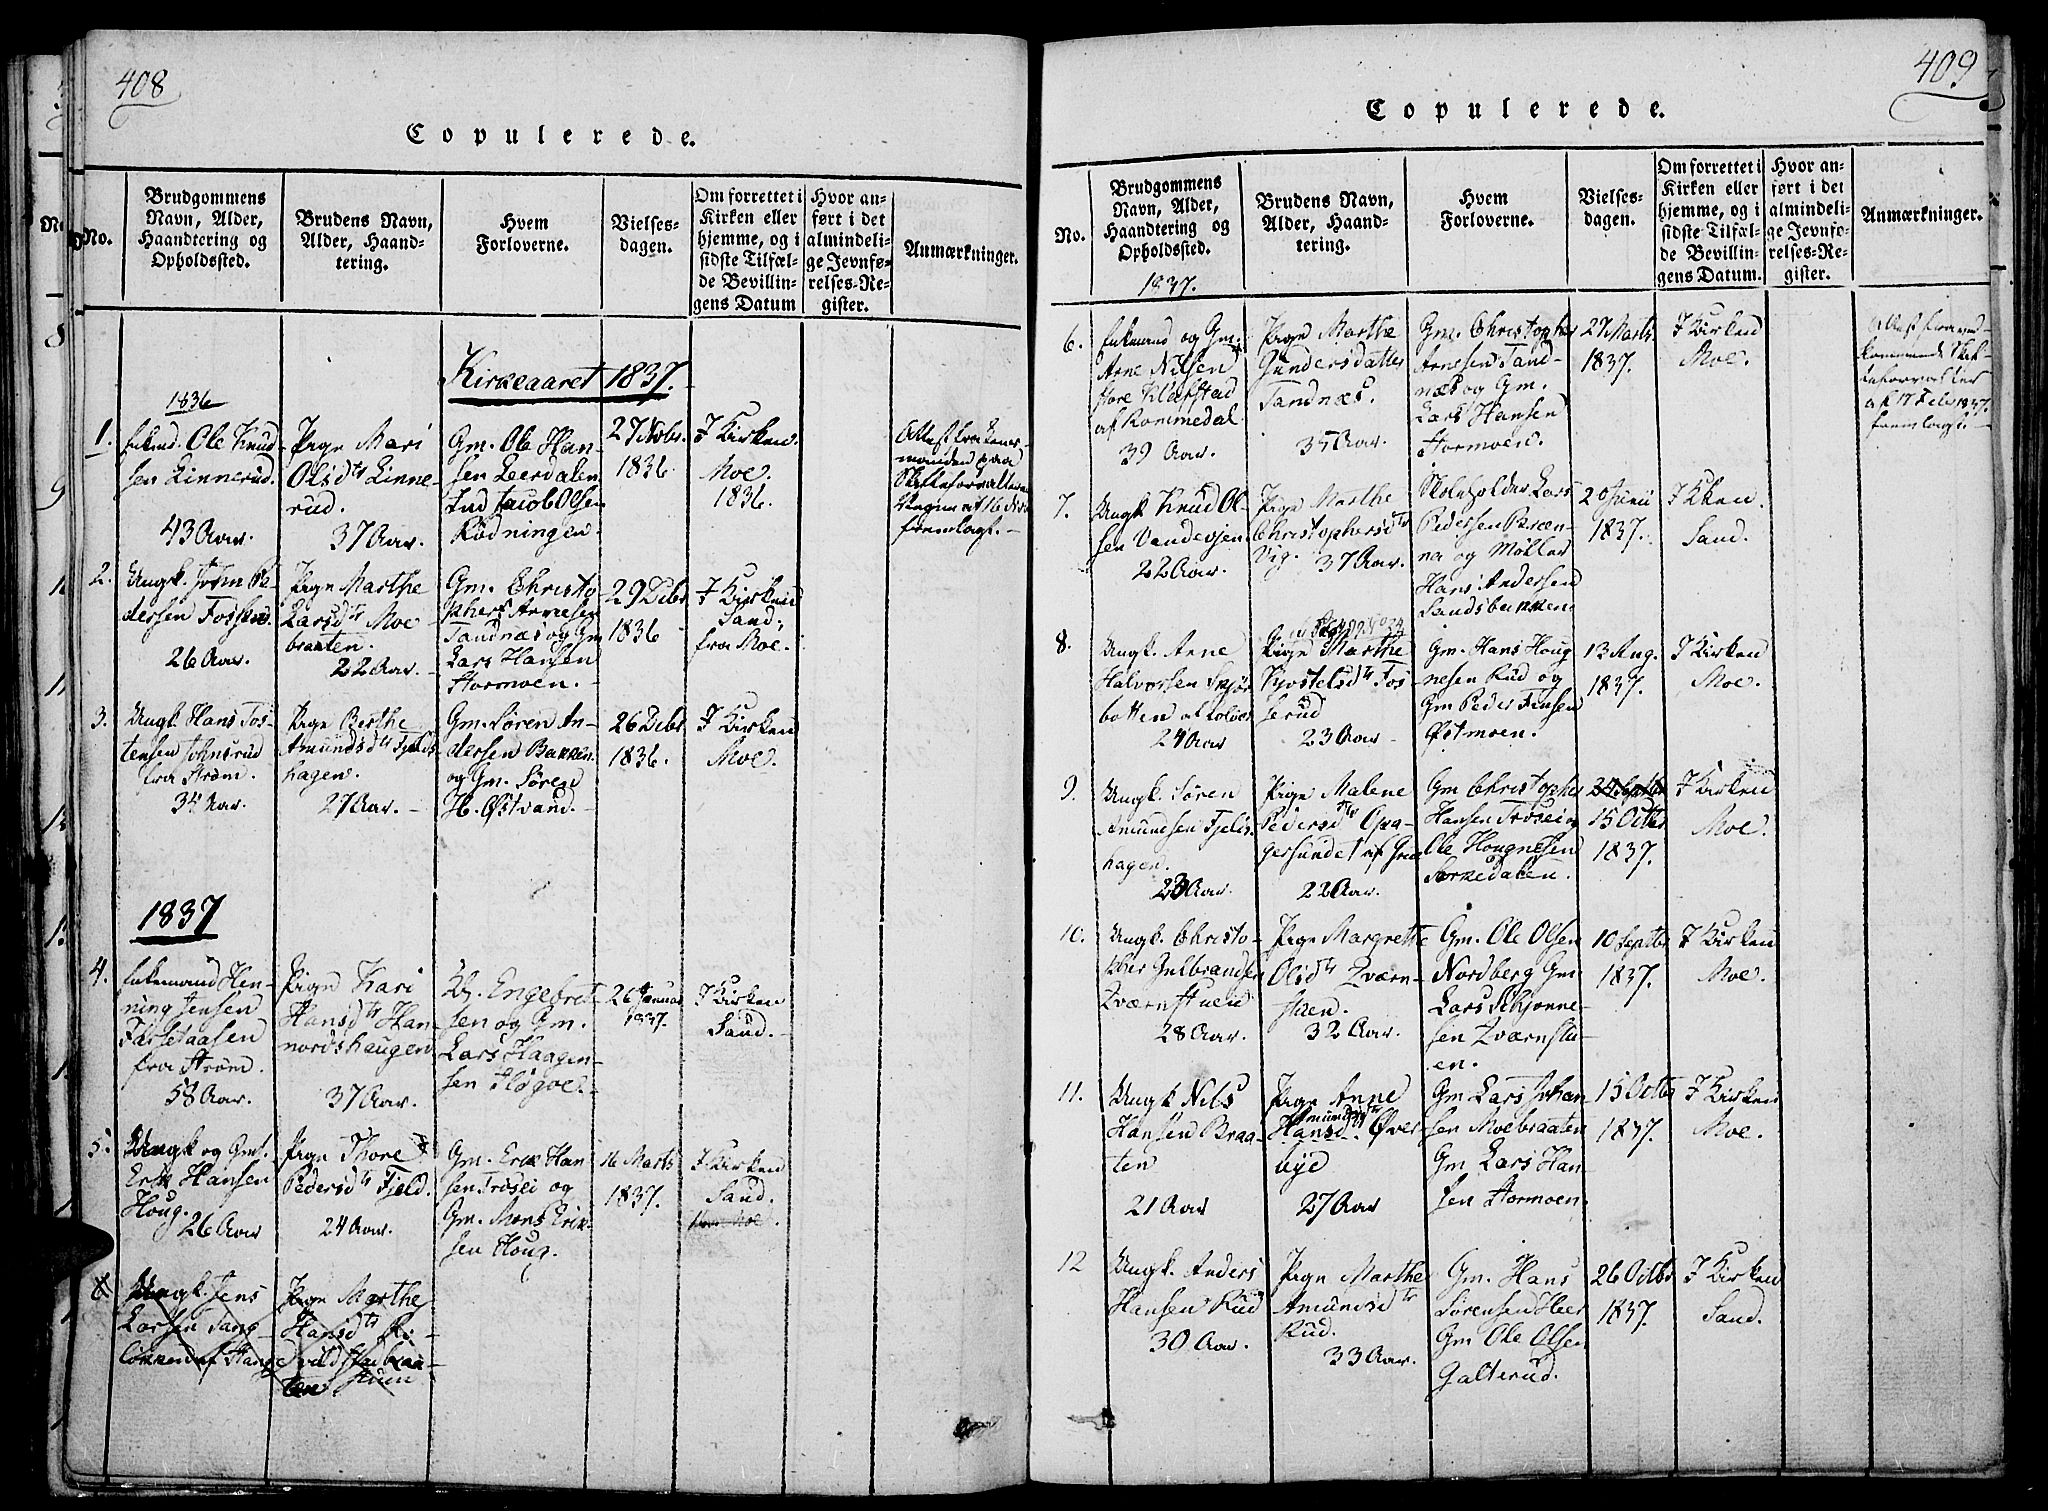 408
Copulerede.
No.
Brudgommens
Navn, Alder,
Haandtering og
Opholdssted.
Brudens Navn,
Alder, Haand-
tering.
Hvem
Forloverne.
Vielses-
dagen.
Om forrettet i
Kirken eller
hjemme, og i
sidste Tilfæl-
de Bevillin-
gens Datum
Hvor an-
ført i det
almindeli-
ge Jevnfø-
relses-Re-
gister.
Anmærkninger.
Kirkeaaret 1837.
1836
1.
Enkmd. Ole Knud-
sen Linnerud.
43 Aar.
Pige Mari
Olsdtr Linne-
rud.
37 Aar.
Gm. Ole Han-
sen Leerdalen
Ind Jacob Olsen
Rødningen
27 Nobr.
1836
I Kirken
Moe.
1836.
Attest fra
manden paa
Skifteforvalteren
af 16
fremlagt.
2.
Ungk. John Pe-
dersen Fossen
26 Aar.
Pige Marthe
Larsdtr Moe-
braaten.
22 Aar.
Gm. Christo-
pher Arnesen
Sandnæs og Gm
Lars Hansen
Stormoen.
29 Debr
1836
I Kirken
Sand,
fra Moe.
3.
Ungk. Hans Tos-
tensen Johnsrud
fra Strøm.
34 Aar.
Pige Berthe
Amundsdtr Fjelds-
hagen.
27 Aar.
Gm. Søren An-
dersen Bakken
og Gm. Søren
H. Østvand.
26 Debr
1836.
I Kirken
Moe.
1837
4.
Enkemand Hen-
ning Jensen
Farsetaasen
fra Strøm.
58 Aar.
Pige Kari
Hansdtr Han-
nordshaugen
37 Aar.
Engebret-
sen og Gm.
Lars Haagen-
sen Fløgoe.
26 Januar
1837.
I Kirken
Sand.
5.
Ungk og Gm.
Erik Hansen
Houg.
26 Aar
Pige Thore
Pedersdtr Fjeld.
24 Aar.
Gm. Erik Han
sen Trøsei og
Gm. Mons Erik-
sen Houg.
16 Marts
1837.
I Kirken
Sand.
Moe.
6
Ungk. Jens
Larsen Sang-
løkken af Stange
Pige Marthe
Hansdtr
409
Copulerede.
No.
Brudgommens
Navn, Alder,
Haandtering og
Opholdssted.
1837.
Brudens Navn,
Alder, Haand-
tering.
Hvem
Forloverne.
Vielses-
dagen.
Om forrettet i
Kirken eller
hjemme, og i
sidste Tilfæl-
de Bevillin-
gens Datum.
Hvor an-
ført i det
almindeli-
ge Jevnfø-
relses-Re-
gister.
Anmærkninger.
6.
Enkemand og Gm.
Arne Nilsen
store Klæfstad
af Rommedal.
39 Aar.
Pige Marthe
Gundersdatter
Sandnæs.
35 Aar.
Gm. Christopher
Arnesen Sand-
næs og Gm.
Lars Hansen
Stormoen.
27 Marts
1837.
I Kirken
Moe.
Attest fra ved-
kommende Skif-
teforvalter
af 17 Feb 1837.
fremlagt.
7.
Ungk Knud Ol-
sen Vandevjen
22 Aar.
Pige Marthe
Christophersdtr
Vig. 37 Aar.
Skoleholder Lars
Pedersen Pareen-
na og Møller
Hans Andersen
Sandsbakken
2 Juni
1837.
I Kken
Sand.
8.
Ungk. Arne
Halvorsen Skjør-
botten af
24 Aar
Pige Marthe
Kjostelsdtr Fos-
serud
23 Aar
Gm. Hans Houg
nesen Rud og
Gm Peder Finsen
Østmoen.
13 Aug.
1837.
I Kirken
Moe.
9.
Ungk. Søren
Amundsen Fjelds-
hagen.
23 Aar.
Pige Malene
Pedersdtr Opa-
gersundet af Grue
22 Aar.
Gm Christopher
Hansen Trøsei og
Ole Hougnesen
Storkedalen.
15 Octbr
1837.
I Kirken
Moe.
10.
Ungk. Christo-
pher Gulbrandsen
Zværnstuen
28 Aar.
Pige Margrethe
Olsdtr Zværn-
stuen.
32 Aar.
Gm. Ole Olsen
Nordberg Gm
Lars Schjønne-
sen Zværnstu-
en.
10 Septbr
1837.
I Kirken
Moe.
11.
Ungk Nils
Hansen Braa-
ten
21 Aar
Pige Anne
Amundsdtr
Hansd. Øver
bye
27 Aar
Gm Lars Johan-
sen Moebraaten
Gm Lars Han-
sen Stormoen
15 Octbr
1837.
I Kirken
Moe.
12
Ungk. Anders
Hansen Rud
30 Aar.
Pige Marthe
Amundsdtr
Rud.
33 Aar.
Gm. Hans
Sørensen Heer
Gm Ole Olsen
Galterud.
26 Octbr
1837.
I Kirken
Sand.